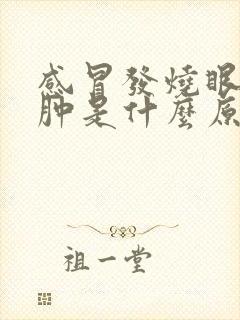 感冒發燒眼
肿是什麼原
祖一堂